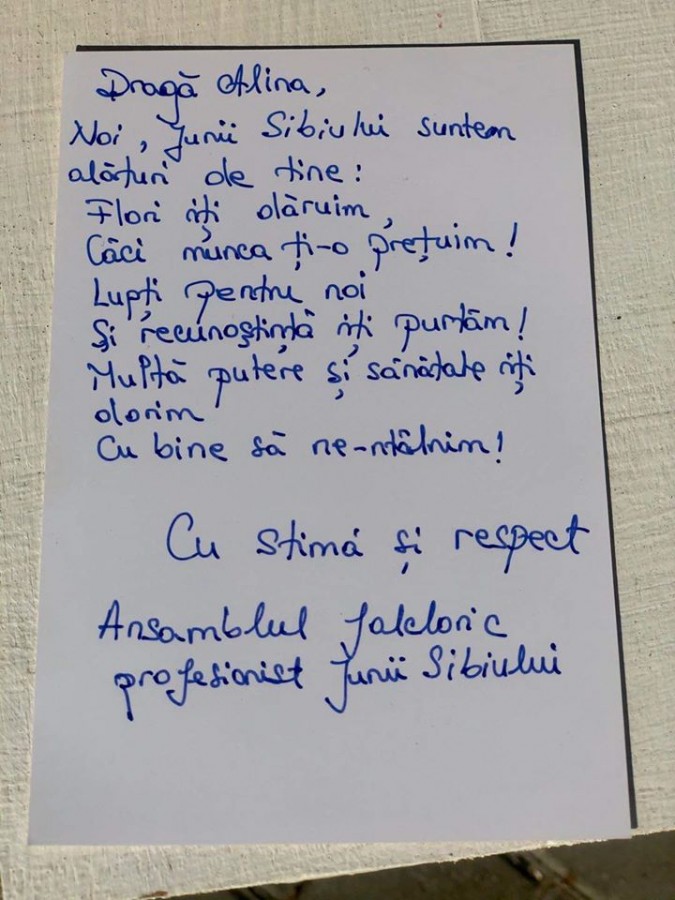 Dragă Alina,
Noi, Junii Sibiului suntem
alături de tine:
Flori îți dăruim,
Căci munca ți-o prețuim!
Lupți pentru noi
Și recunoștință îți purtăm!
Multă putere și sănătate îți
dorim
Cu bine să ne-ntâlnim!
Cu stimă și respect
Ansamblul folcloric
profesionist Junii Sibiului